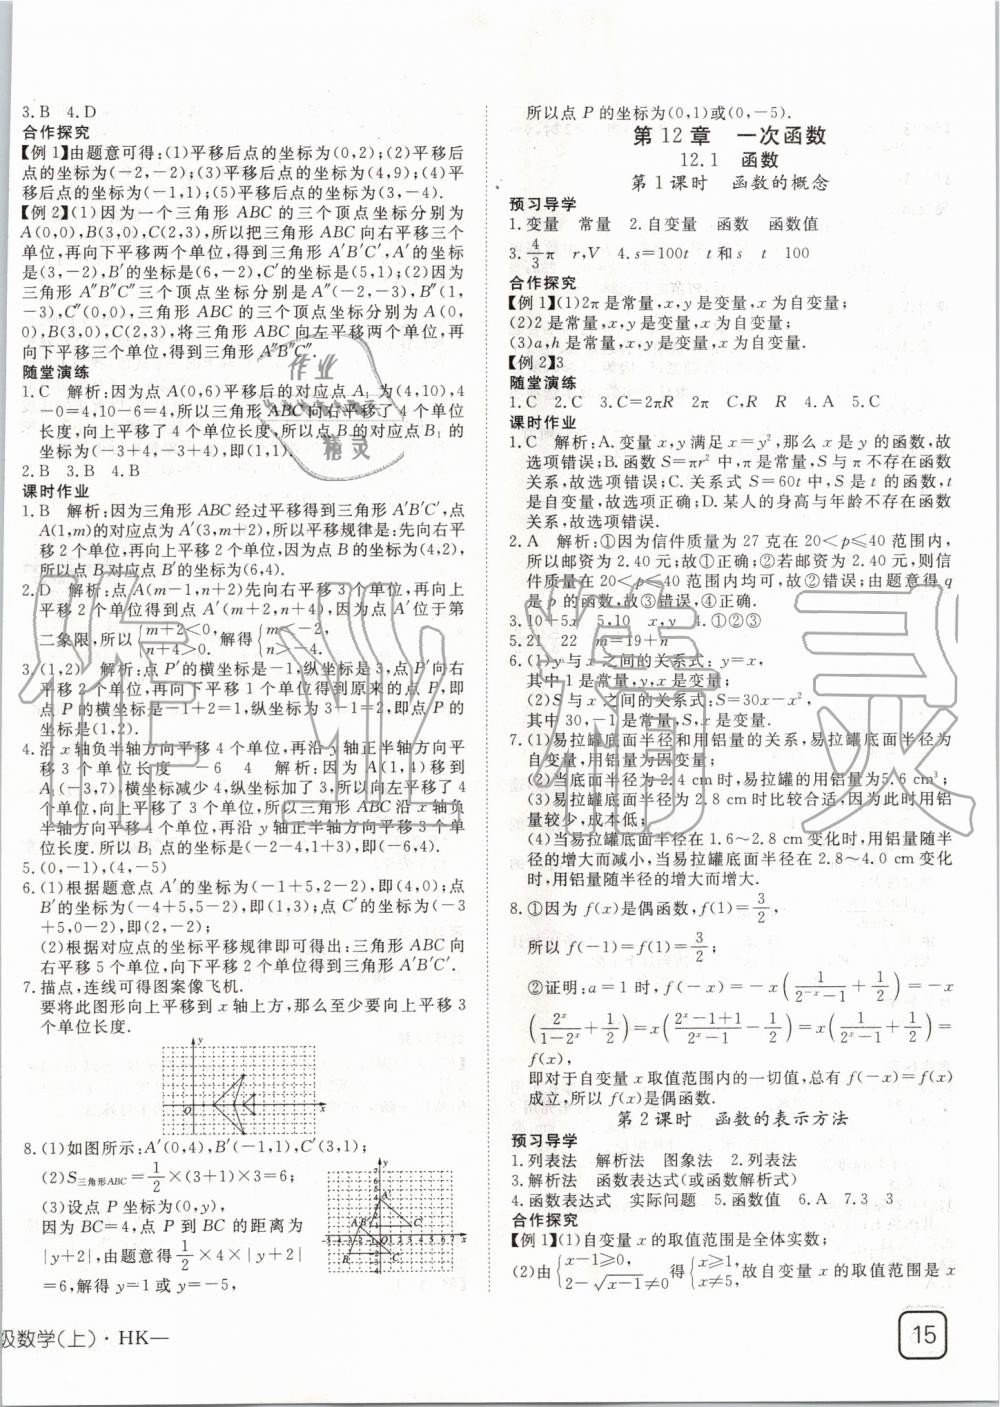 3.B　4.D
合作探究
【例 1】由题意可得:(1)平移后点的坐标为(0,2);(2)平移后
点的坐标为(-2,-2);(3)平移后点的坐标为(4,9);(4)平移
后点的坐标为(-1,1);(5)平移后点的坐标为(3,-4).
【例 2】(1)因为一个三角形 ABC 的三个顶点坐标分别为
A(0,0),B(3,0),C(2,3).所以把三角形 ABC 向右平移三个
单位,再向下平移两个单位,得到三角形 A′B′C′,A′的坐标
是(3,-2),B′的坐标是(6,-2),C′的坐标是(5,1);(2)因为
三角形 A″B″C″三个顶点坐标分别是 A″(-2,-3),B″(1,
-3),C″(0,0),三角形 ABC 的三个顶点坐标分别为 A(0,
0),B(3,0),C(2,3),将三角形 ABC 向左平移两个单位,再
向下平移三个单位,得到三角形 A″B″C″.
随堂演练
1.C　解析:因为点 A(0,6)平移后的对应点 A₁ 为(4,10),4
-0=4,10-6=4,所以三角形 ABC 向右平移了 4 个单位
长度,向上平移了 4 个单位长度,所以点 B 的对应点 B₁ 的
坐标为(-3+4,-3+4),即(1,1).
2.B　3.B　4.B
课时作业
1.B　解析:因为三角形 ABC 经过平移得到三角形 A′B′C′,点
A(1,m)的对应点为 A′(3,m+2),所以平移规律是:先向右平
移 2 个单位,再向上平移 2 个单位,因为点 B 的坐标为(4,2),
所以点 B 对应点 B′的坐标为(6,4).
2.D　解析:点 A(m,n)先向右平移 2 个单位,再向上
平移 4 个单位得到点 A′(m+2,n+4),因为点 A′位于第
二象限,所以 {m+2<0, n+4>0. 解得 {m<-2, n>-4.
3.(1,2)　解析:点 P′的横坐标是-1,纵坐标是 3,点 P′向右
平移 2 个单位,再向下平移 1 个单位得到原来的点 P,即
点 P 的横坐标是-1+2=1,纵坐标为 3-1=2.则点 P 的
坐标是(1,2).
4.沿 x 轴负半轴方向平移 4 个单位,再沿 y 轴正半轴方向
平移 3 个单位长度　-6　4　解析:因为 A(1,4)移到
A₁(-3,7),横坐标减少 4,纵坐标加了 3,所以向左平移了 4
个单位,向上平移了 3 个单位,所以三角形 ABC 沿 x 轴负
半轴方向平移 4 个单位,再沿 y 轴正半轴方向平移 3 个单
位长度.所以 B₁ 点的坐标是(-2-4,1+3),即(-6,4).
5.(0,-1),(4,-5)
6.(1)根据题意点 A′的坐标为(-1+5,2-2),即(4,0);点
B′的坐标为(-4+5,5-2),即(1,3);点 C′的坐标为(-3
+5,0-2),即(2,-2);
(2)根据对应点的坐标平移规律即可得出:三角形 ABC 向
右平移 5 个单位,向下平移 2 个单位得到三角形 A′B′C′.
7.描点,连线可得图案像飞机.
要将此图形向上平移到 x 轴上方,那么至少要向上平移 3
个单位长度.
y
O
x
8.(1)如图所示:A′(0,4),B′(-1,1),C′(3,1);
(2)S三角形ABC=1/2×(3+1)×3=6;
(3)设点 P 坐标为(0,y),
因为 BC=4,点 P 到 BC 的距离为
|y+2|,由题意得 1/2×4×|y+2|
=6,解得 y=1 或 y=-5,
所以点 P 的坐标为(0,1)或(0,-5).
第 12 章　一次函数
12.1　函数
第 1 课时　函数的概念
预习导学
1.变量　常量　2.自变量　函数　函数值
3.4/3π　r,V　4.s=100t　t 和 s　t　100
合作探究
【例 1】(1)2π 是常量,x,y 是变量,x 为自变量;
(2)2 是常量,x,y 是变量,x 为自变量;
(3)a,h 是常量,x,y 是变量,x 为自变量.
【例 2】3
随堂演练
1.C　2.C　3.C=2πR　2π　C,R　R　4.A　5.C
课时作业
1.C　解析:A.变量 x,y 满足 x=y²,那么 x 是 y 的函数,故
选项错误;B.函数 S=πr² 中,π是常量,S 与 π 不存在函数
关系,故选项错误;C.关系式 S=60t 中,S 是 t 的函数,t
是自变量,故选项正确;D.某人的身高与年龄不存在函数
关系,故选项错误.
2.A　解析:①因为信件质量为 27 克在 20<p≤40 范围内,
所以邮资为 2.40 元,故①正确;②若邮资为 2.40 元,则信
件质量在 20<p≤40 范围内均可,故②错误;由题意得 q
是 p 的函数,故③错误,④正确.
3.10+5x　5,10　x,y　4.①②③
5.21　22　m=19+n
6.(1)y 与 x 之间的关系式:y=x,
其中 1 是常量,y,x 是变量;
(2)S 与 x 之间的关系式:S=30x-x²,
其中 30,-1 是常量,S,x 是变量.
7.(1)易拉罐底面半径和用铝量的关系,易拉罐底面半径为
自变量,用铝量为因变量;
(2)当底面半径为 2.4 cm 时,易拉罐的用铝量为5.6 cm³;
(3)易拉罐底面半径为 2.8 cm 时比较合适,因为此时用铝
量较少,成本低;
(4)当易拉罐底面半径在 1.6～2.8 cm 变化时,用铝量随半
径的增大而减小,当易拉罐底面半径在 2.8～4.0 cm 变化
时,用铝量随半径的增大而增大.
8.①因为 f(x)是偶函数,f(1)=3/2,
所以 f(-1)=f(1)=3/2;
②证明:a=1 时,f(-x)=-x(1/(2⁻ˣ-1)+1/2)=-x
(2ˣ/(1-2ˣ)+1/2)=x((2ˣ-1+1)/(2ˣ-1)-1/2)=x(1/(2ˣ-1)+1/2)=
f(x),
即对于自变量 x 取值范围内的一切值,总有 f(-x)=f(x)
成立,所以 f(x)是偶函数.
第 2 课时　函数的表示方法
预习导学
1.列表法　解析法　图象法　2.列表法
3.解析法　函数表达式(或函数解析式)
4.函数表达式　实际问题　5.函数值　6.A　7.3　3
合作探究
【例 1】(1)自变量 x 的取值范围是全体实数;
(2)由{x-1≥0, 2-√(x-1)≠0 得{x≥1, x≠5, 故自变量 x 的取值范围是 x
级数学(上)·HK—
15
作业精灵